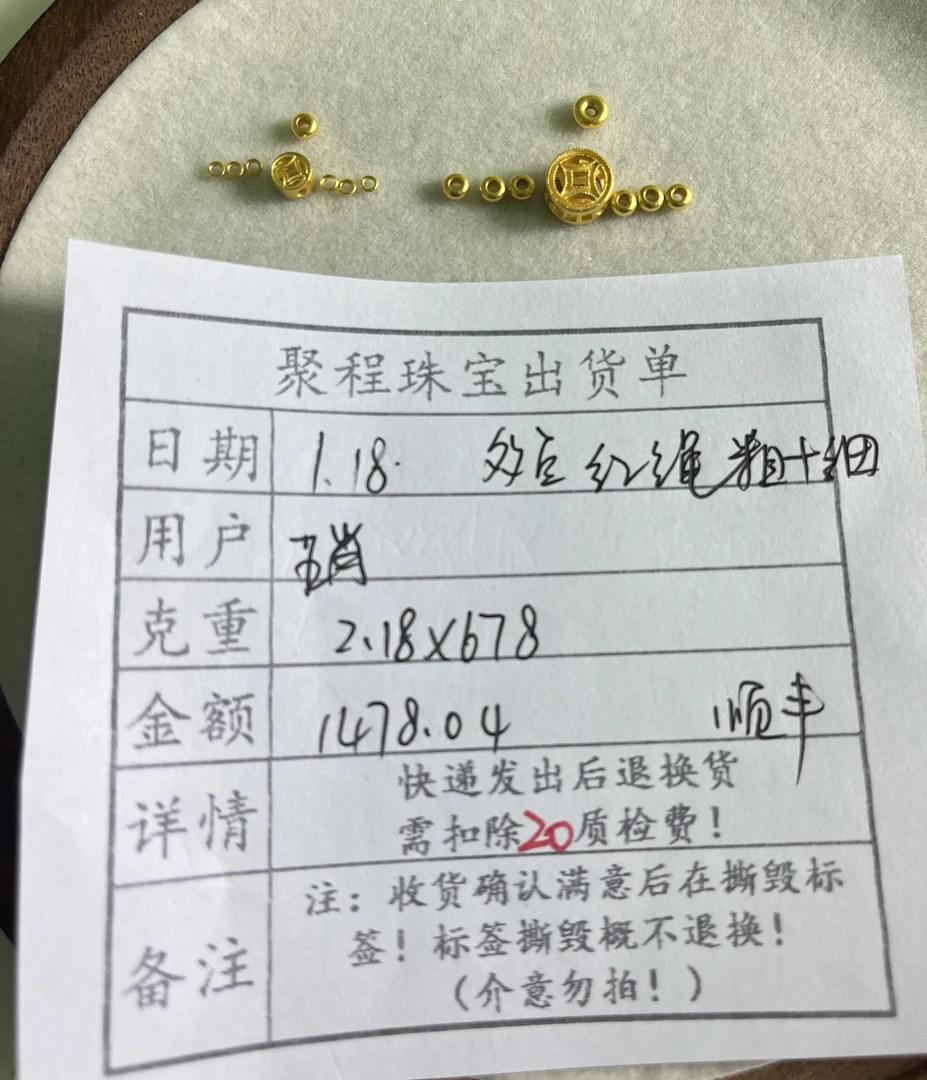 聚程珠宝出货单
日期 1.18. 红绳粗+细
用户 王肖
克重 2.18×678
金额 1478.04 顺丰
详情 快递发出后退换货
需扣除20质检费！
备注 注：收货确认满意后在撕毁标
签！标签撕毁概不退换！
（介意勿拍！）